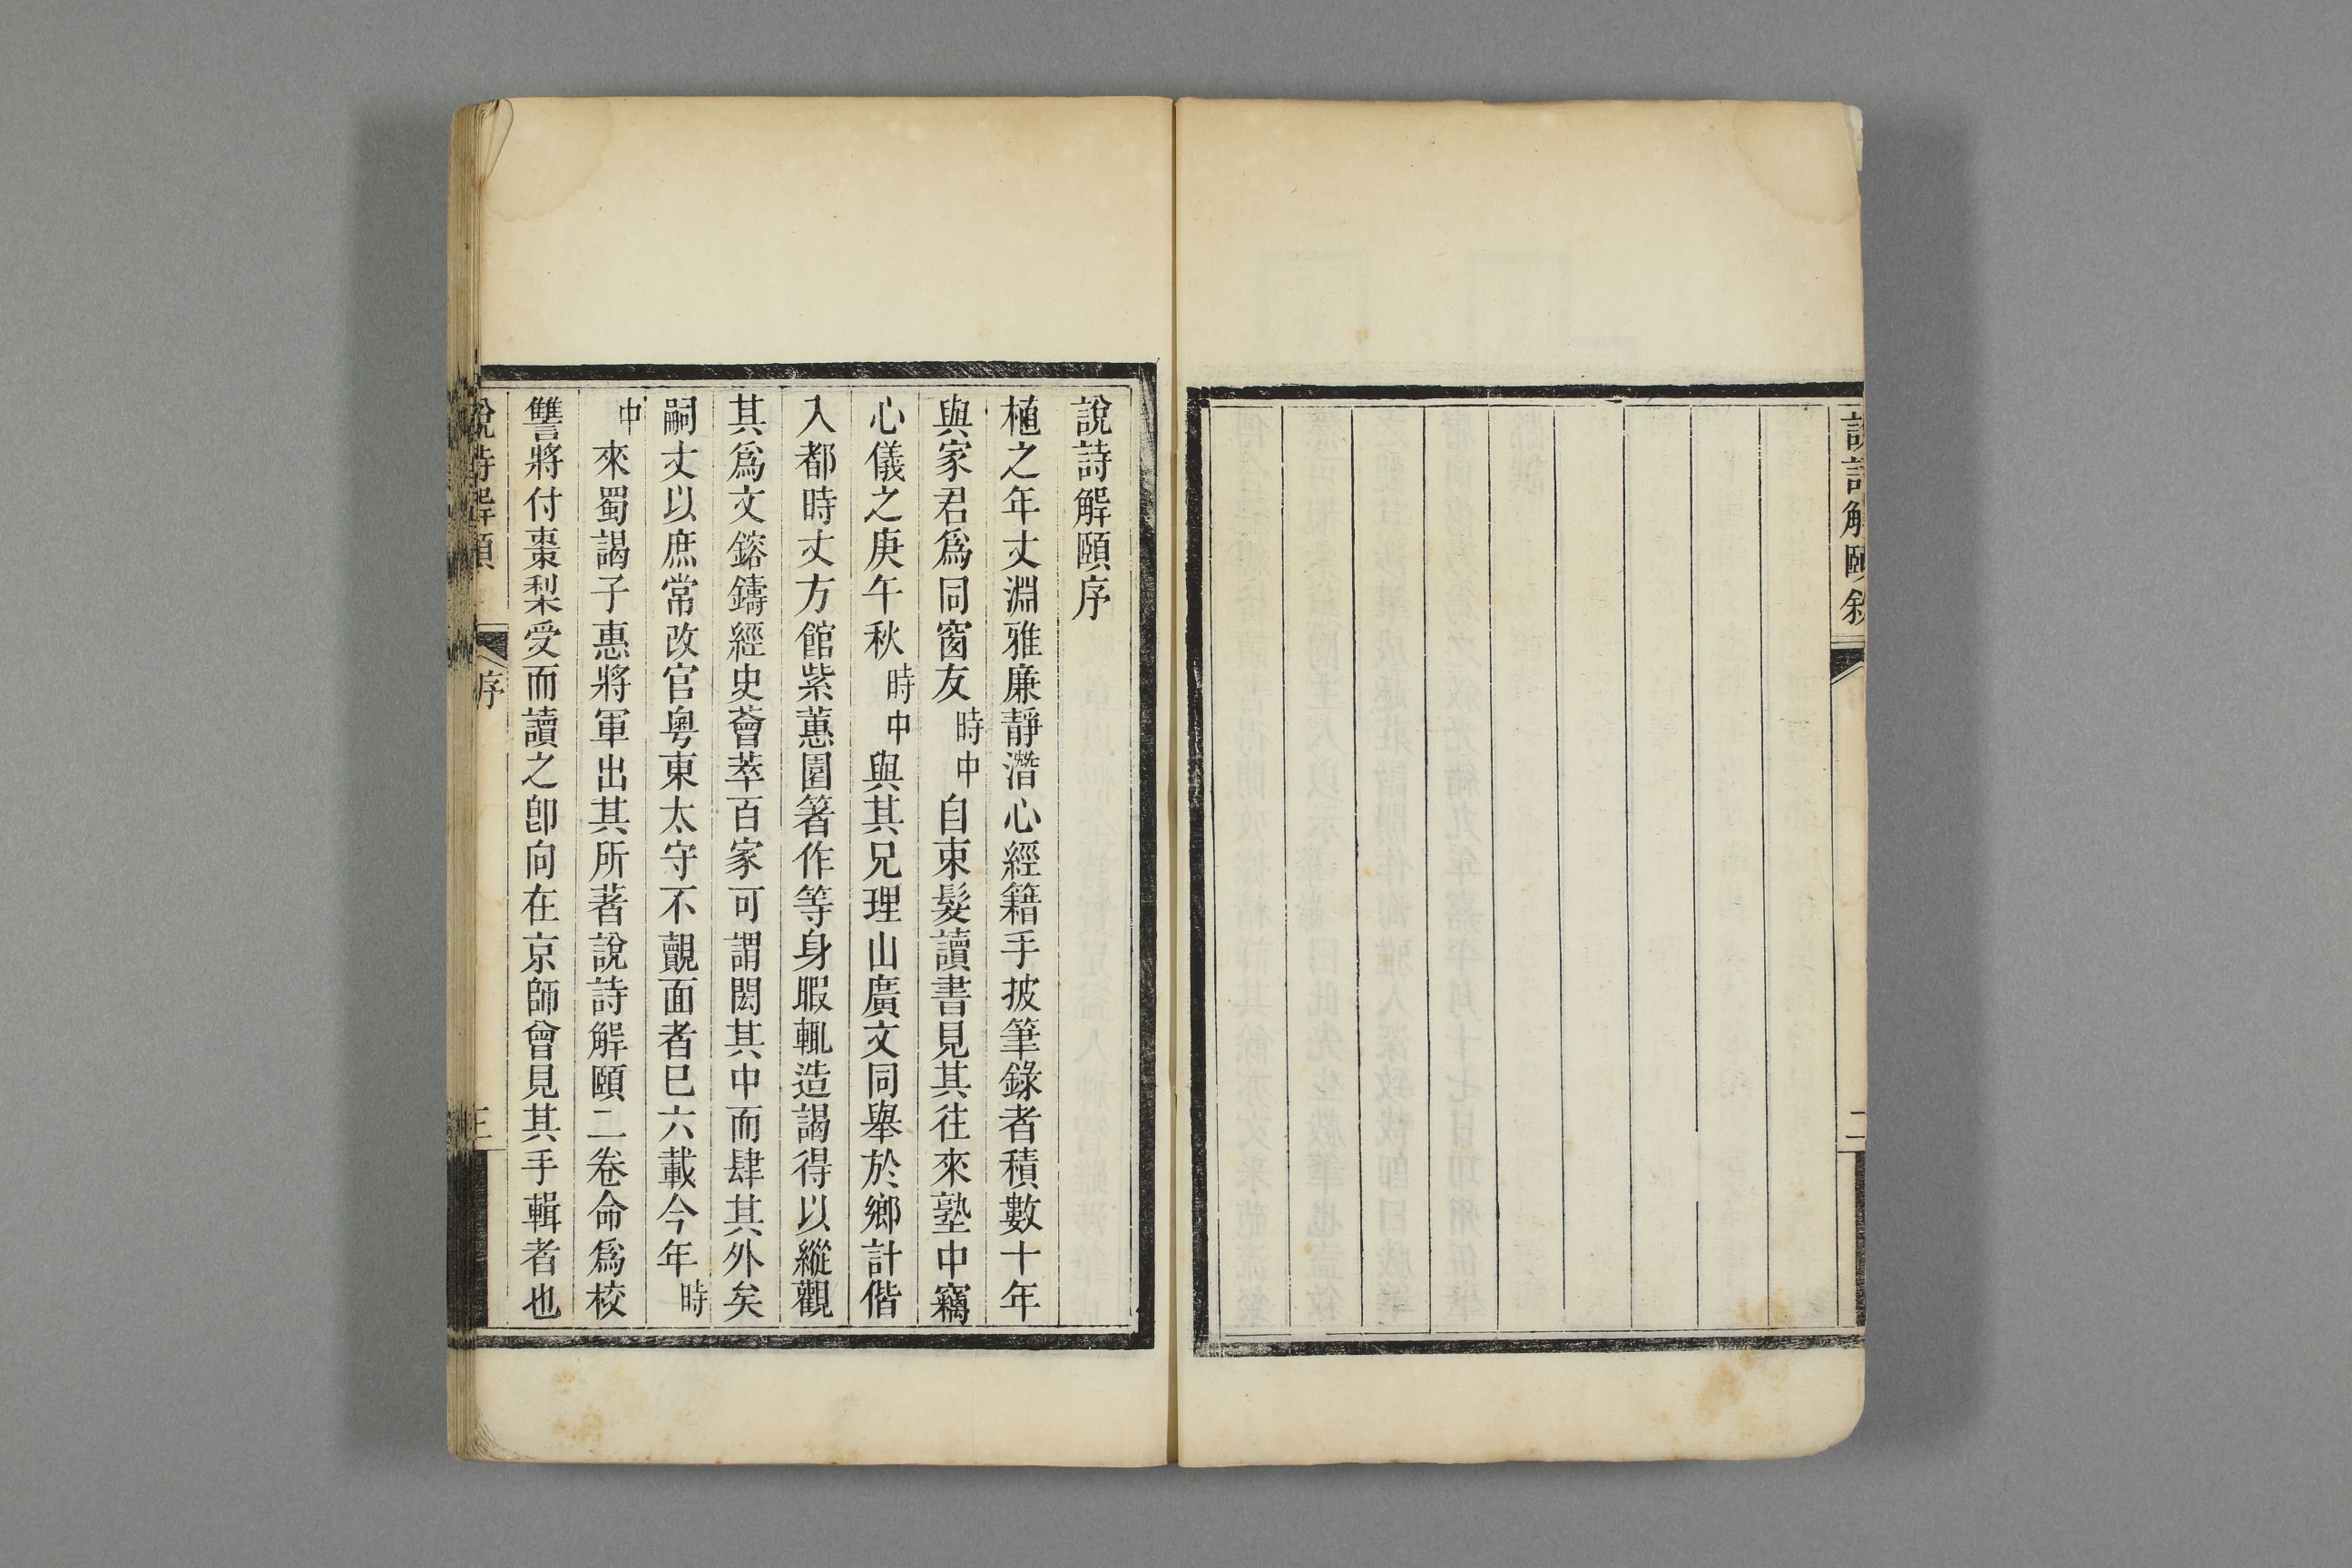 說詩解頤敘
二
說詩解頤序
植之年丈淵雅廉靜潛心經籍手披筆錄者積數十年
與家君爲同窗友時中自束髮讀書見其往來塾中竊
心儀之庚午秋時中與其兄理山廣文同舉於鄉計偕
入都時丈方館紫蕙園箸作等身暇輒造謁得以縱觀
其爲文鎔鑄經史薈萃百家可謂閎其中而肆其外矣
嗣丈以庶常改官粵東太守不覿面者已六載今年時
中來蜀謁子惠將軍出其所著說詩解頤二卷命爲校
讐將付棗梨受而讀之卽向在京師曾見其手輯者也
說詩解頤
序